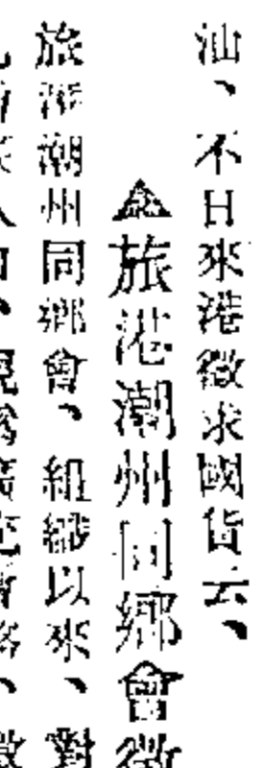 汕、不日來港徵求國貨云、
▲旅港潮州同鄉會徵
旅港潮州同鄉會、組織以來、對